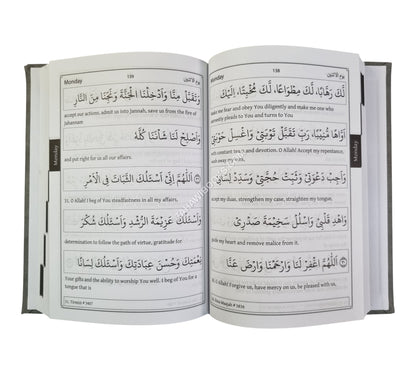 Monday 138 يوم الاثنين
لَكَ رَهَّابًا، لَكَ مِطْوَاعًا، لَكَ مُخْبِتًا، إِلَيْكَ
make me fear and obey You diligently and make me one who
pleads to You and turns to You
أَوَّاهًا مُّنِيْبًا، رَبِّ تَقَبَّلْ تَوْبَتِيْ وَاغْسِلْ حَوْبَتِيْ
with constant and devotion. O Allah! Accept my repentance,
wash away my
وَأَجِبْ دَعْوَتِيْ وَثَبِّتْ حُجَّتِيْ وَسَدِّدْ لِسَانِيْ
accept my duas, strengthen my case, straighten my tongue,
وَاهْدِ قَلْبِيْ وَاسْلُلْ سَخِيْمَةَ صَدْرِيْ
guide my heart and remove malice from it.
اَللّٰهُمَّ اغْفِرْ لَنَا وَارْحَمْنَا وَارْضَ عَنَّا
O Allah! Forgive us, have mercy on us, be pleased with us,
Ibn Maajah # 3836
Monday
Monday 139 يوم الاثنين
وَتَقَبَّلْ مِنَّا وَأَدْخِلْنَا الْجَنَّةَ وَنَجِّنَا مِنَ النَّارِ
accept our actions, admit us into Jannah, save us from the fire of
Jahannam
وَأَصْلِحْ لَنَا شَأْنَنَا كُلَّهُ
and put right for us all our affairs.
اَللّٰهُمَّ إِنِّيْ أَسْئَلُكَ الثَّبَاتَ فِي الْأَمْرِ
31. O Allah! I beg of You steadfastness in all my affairs,
وَأَسْئَلُكَ عَزِيْمَةَ الرُّشْدِ وَأَسْئَلُكَ شُكْرَ
determination to follow the path of virtue, gratitude for
نِعْمَتِكَ وَحُسْنَ عِبَادَتِكَ وَأَسْئَلُكَ لِسَانًا
Your gifts and the ability to worship You well. I beg of You for a
tongue that is
31. Tirmizi # 3407
Monday